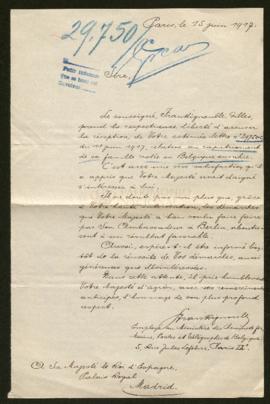 Paris, le 15 juin 1917.
29.750
Sire,
Le soussigné, Franquignoulle, Gilles,
prend la respectueuse liberté d'accuser
la réception de Votre estimée lettre
du juin 1917, relative au rapatriement
de sa famille restée en Belgique envahie.
C'est avec une vive satisfaction qu'il
a appris que Votre Majesté avait daigné
s'intéresser à lui.
Il ne doute pas non plus que, grâce
à Votre haute intervention, les démarches
que Votre Majesté a bien voulu faire faire
par Son Ambassadeur à Berlin, aboutiront
à un résultat favorable.
Aussi, espère-t-il être informé
de la réussite de Vos démarches, aussi
généreuses que désintéressées.
Dans cette attente, il prie humblement
Votre Majesté d'agréer, avec ses remerciements
anticipés, l'hommage de son plus profond
respect.
Employé au Ministère des Chemins de fer,
Marine, Postes et Télégraphes de Belgique
5, Rue Jules Lefebvre, Paris IXe
A Sa Majesté le Roi d'Espagne,
Palais Royal
Madrid.